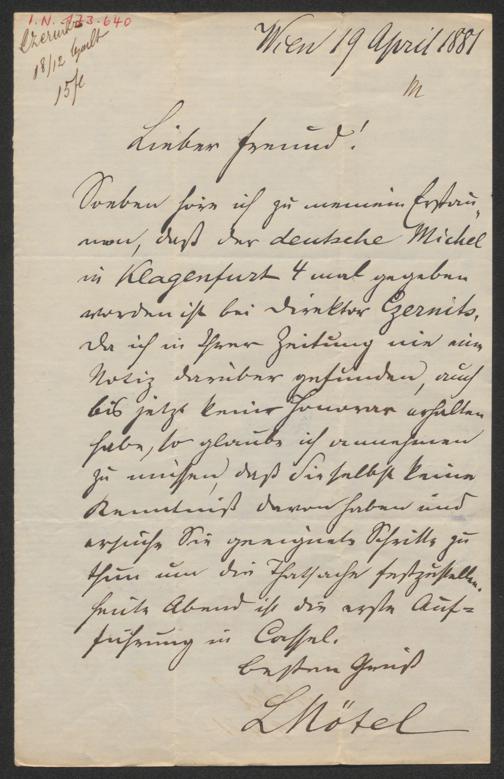 I.N. 173.640
Czernits
18/12
15 fl
Wien 19 April 1881
Lieber Freund!
Soeben höre ich zu meinem Erstau„
nen, daß der deutsche Michel
in Klagenfurt 4 mal gegeben
worden ist bei Direktor Czernits.
Da ich in Ihrer Zeitung nie eine
Notiz darüber gefunden, auch
bis jetzt keine Honorar erhalten
habe, so glaube ich annehmen
zu müssen, daß Sie selbst keine
Kenntniß davon haben und
ersuche Sie geeignete Schritte zu
thun um die Thatsache festzustellen.
Heute Abend ist die erste Auf=
führung in Cassel.
Besten Gruß
LNötel